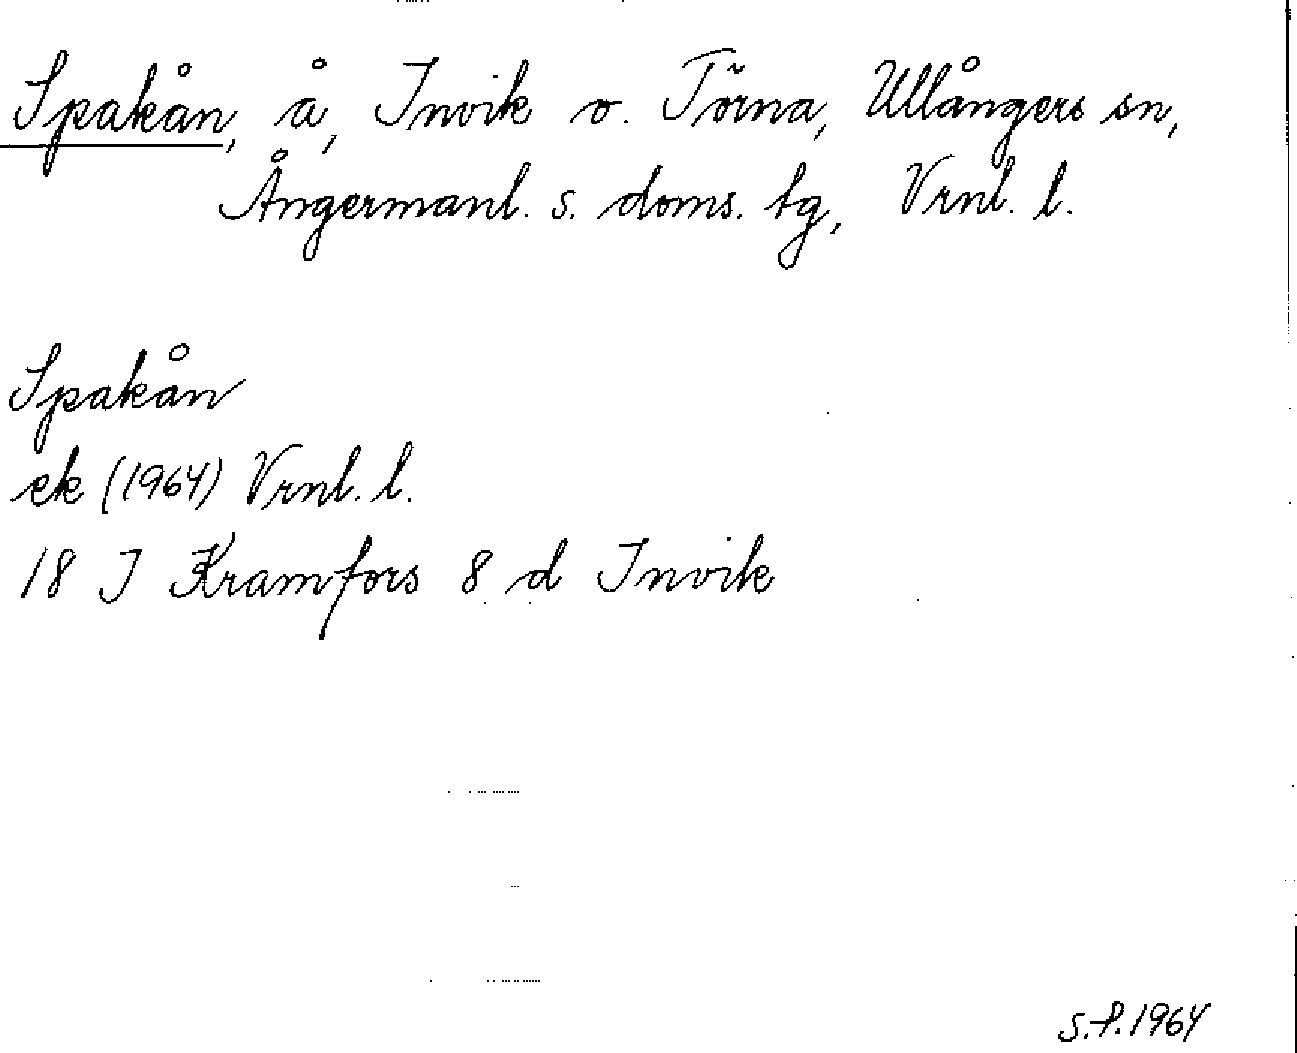 Spakån, å, Invik o. Törna, Ullångers sn,
Ångermanl. s. doms. tg, Vrnl. l.
Spakån
ek (1964) Vrnl. l.
18 J Kramfors 8 d Invik
S.P. 1964